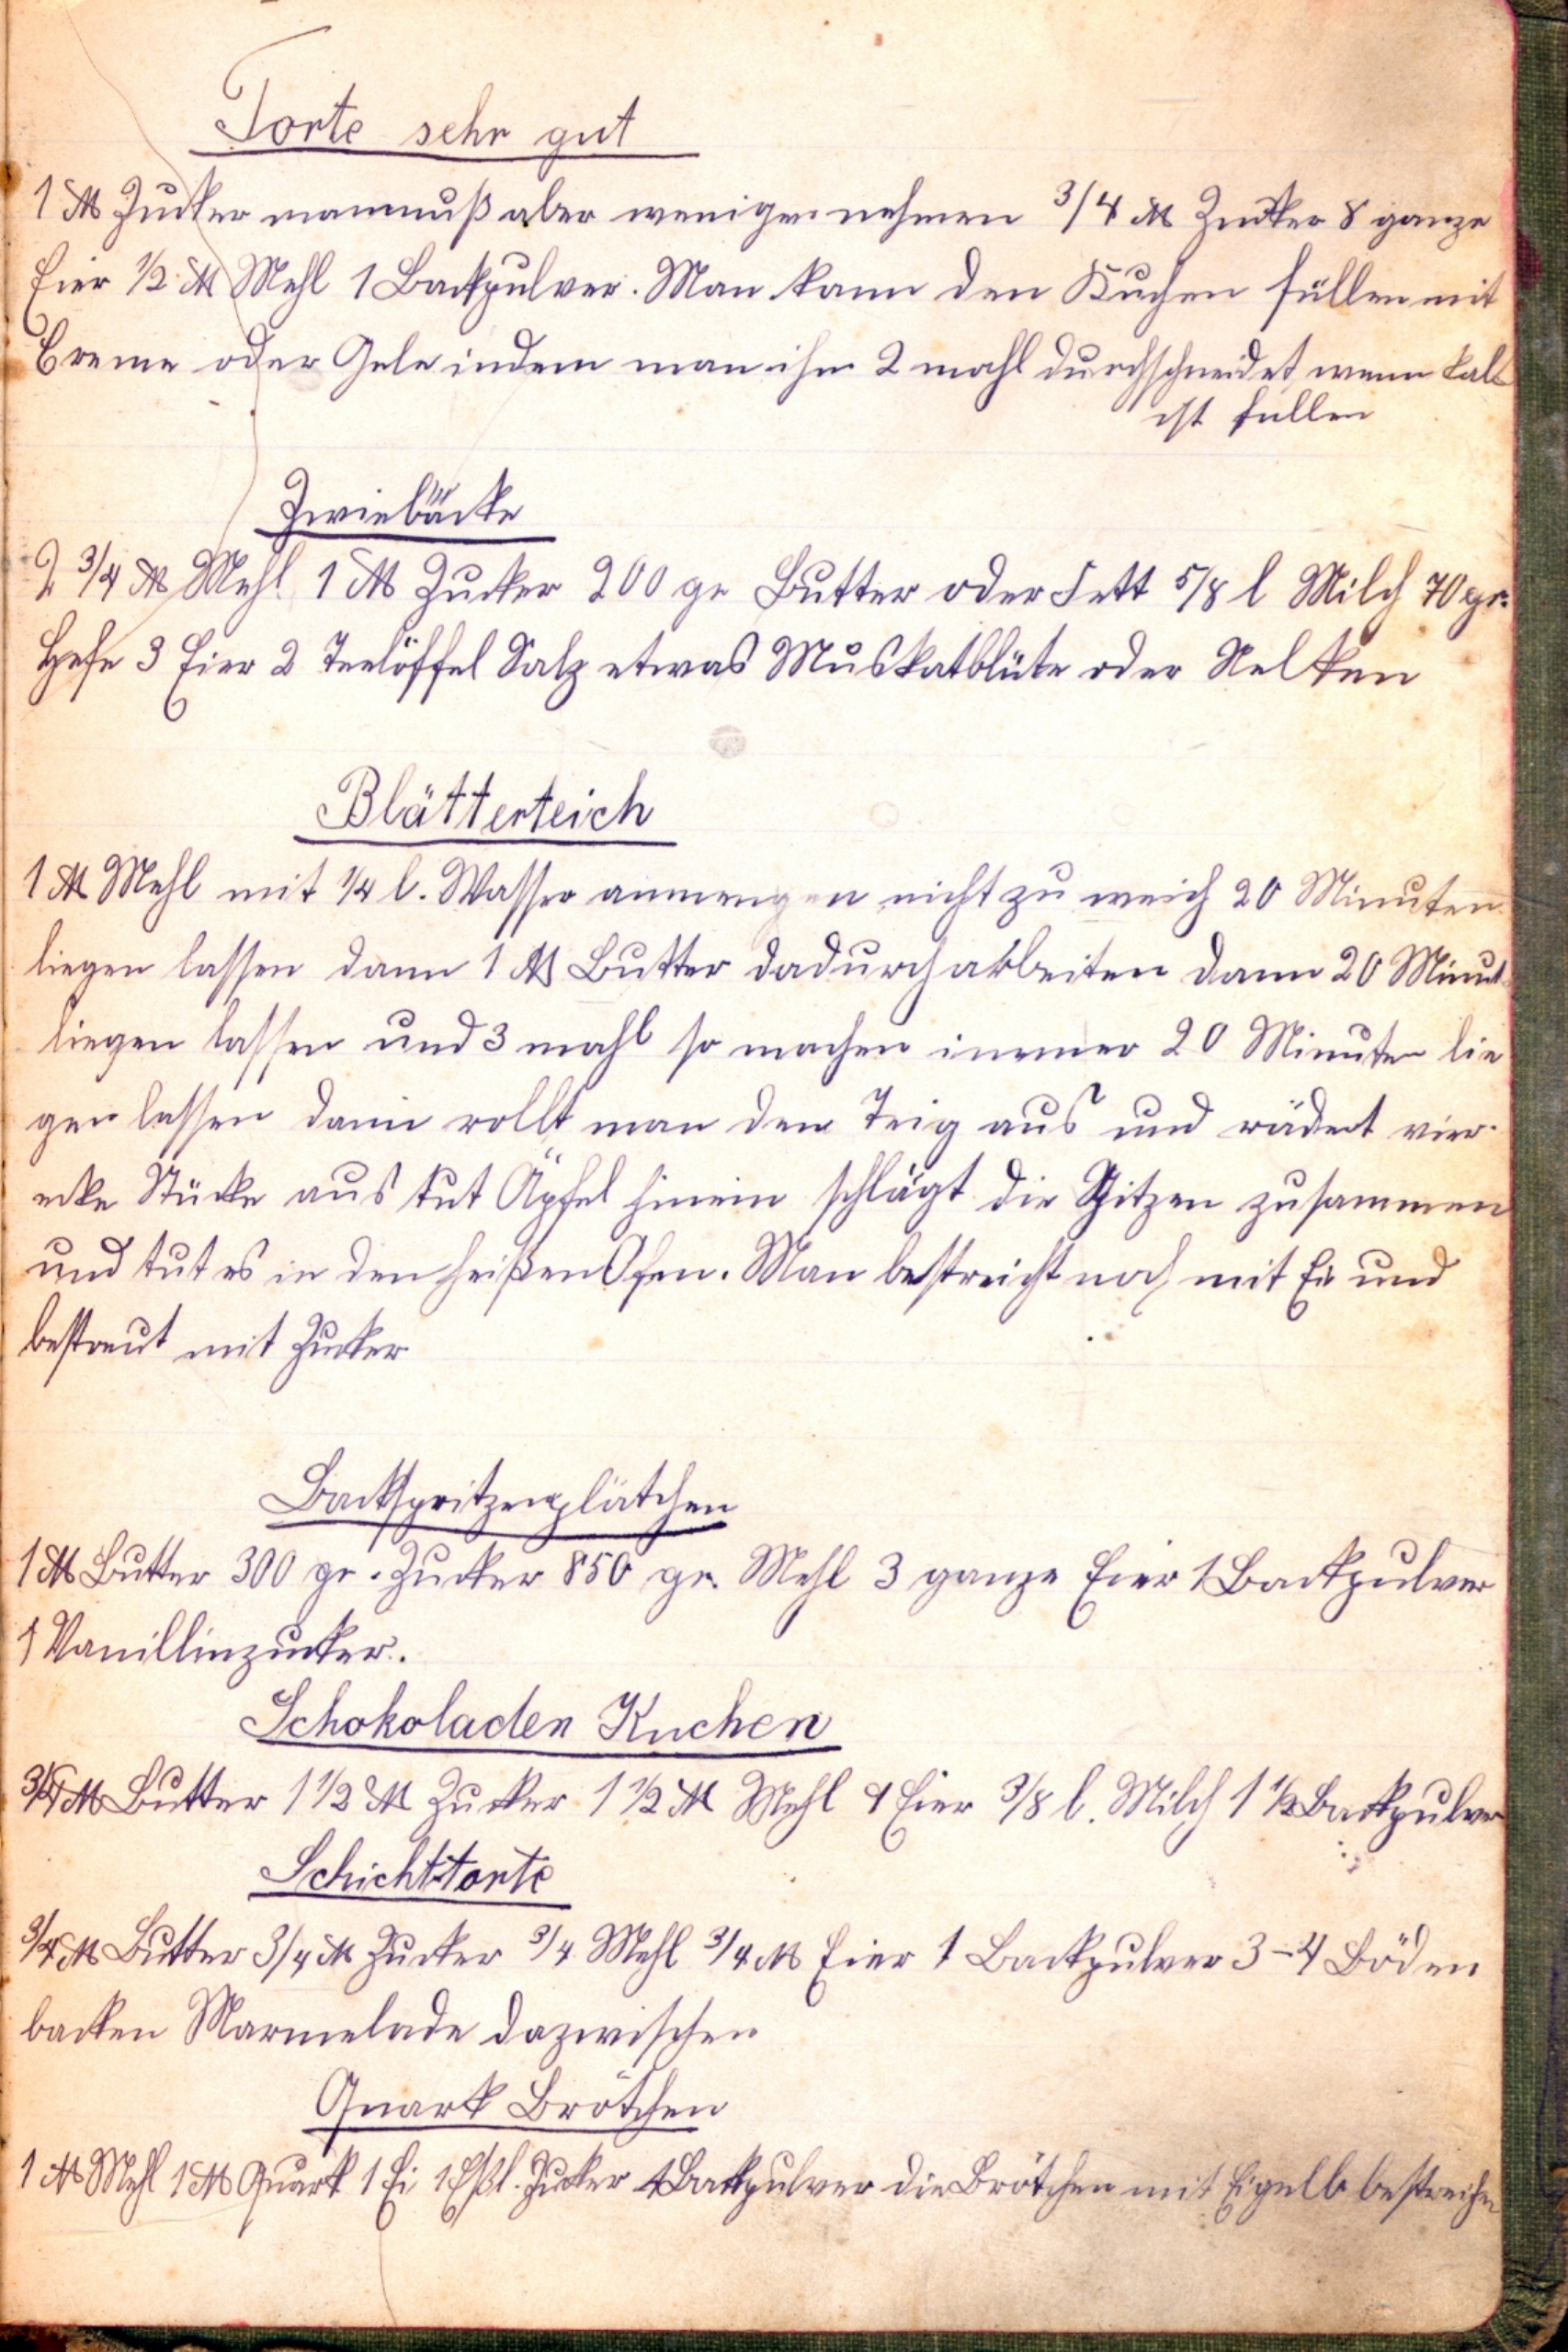 Torte sehr gut
1 ℔ Zucker manmuß aber weniger nehmen 3/4 ℔ Zucker 8 ganze
Eier 1/2 ℔ Mehl 1 Backpulver. Man kann den Kuchen füllen mit
Creme oder Gele indem man ihn 2 mahl durchschneidet wenn kalt
ist füllen
Zwiebäcke
2 3/4 ℔ Mehl 1 ℔ Zucker 200 gr Butter oder Fett 5/8 l Milch 70 gr.
Hefe 3 Eier 2 Teelöffel Salz etwas Muskatblüte oder Nelken
Blätterteich
1 ℔ Mehl mit 1/4 l. Wasser anmengen nicht zu weich 20 Minuten
liegen lassen dann 1 ℔ Butter dadurcharbeiten dann 20 Minut
liegen lassen und 3 mahl so machen immer 20 Minuten lie
gen lassen dann rollt man den Teig aus und rädert vier-
ecke Stücke aus tut Äpfel hinein schlägt die Spitzen zusammen
und tut es in den heißen Ofen. Man bestreicht noch mit Ei und
bestreut mit Zucker
Backspritzenplätchen
1 ℔ Butter 300 gr. Zucker 850 gr. Mehl 3 ganze Eier 1 Backpulver
1 Vanillinzucker.
Schokoladen Kuchen
3/4 ℔ Butter 1 1/2 ℔ Zucker 1 1/2 ℔ Mehl 4 Eier 3/8 l. Milch 1 1/2 Backpulver
Schichttorte
3/4 ℔ Butter 3/4 ℔ Zucker 3/4 Mehl 3/4 ℔ Eier 1 Backpulver 3-4 Böden
backen Marmelade dazwischen
Quark Brötchen
1 ℔ Mehl 1 ℔ Quark 1 Ei 1 Eßl. Zucker 1 Backpulver die Brötchen mit Eigelb bestreichen